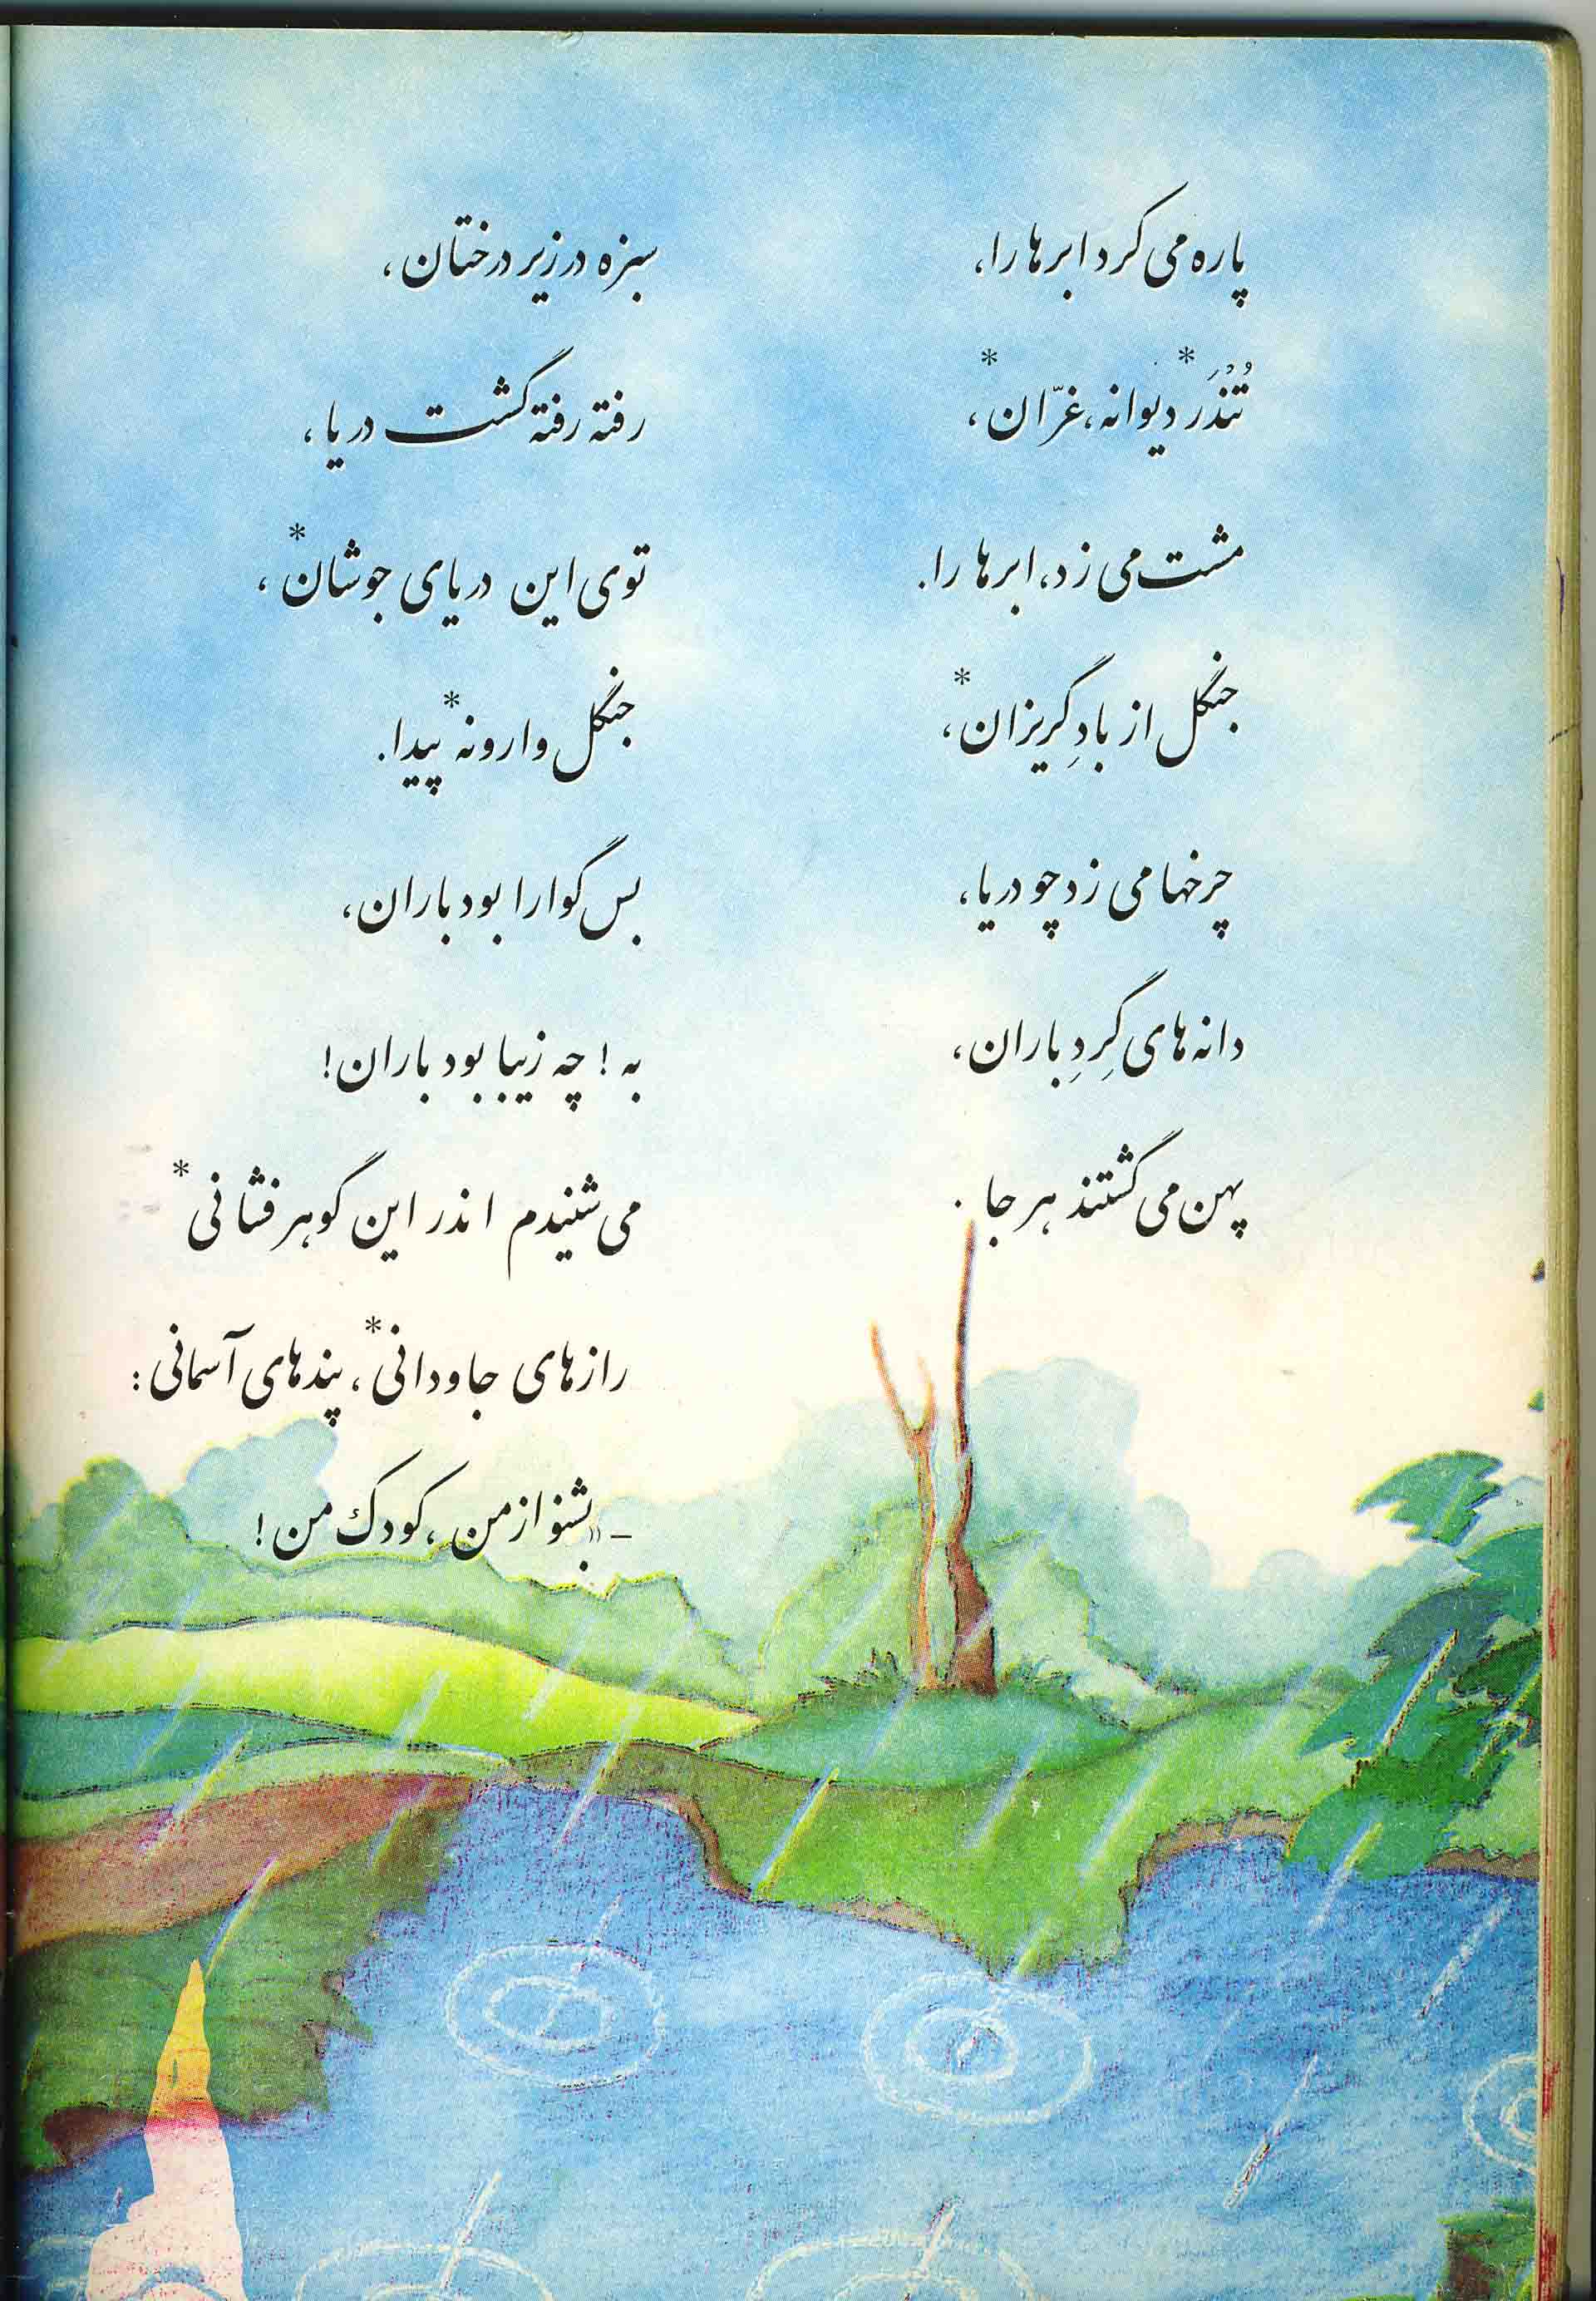 پاره می کرد ابرها را،
تُنْدَر* دیوانه، غرّان*،
مشت می زد، ابرها را.
جنگل از بادِ گریزان*،
چرخها می زد چو دریا،
دانه های گِردِ باران،
پهن می گشتند هر جا.
سبزه در زیر درختان،
رفته رفته گشت دریا،
توی این دریای جوشان*،
جنگل وارونه* پیدا.
بس گوارا بود باران،
به! چه زیبا بود باران!
می شنیدم اندر این گوهر فشانی*
رازهای جاودانی*، پندهای آسمانی:
– «بشنو از من، کودک من!